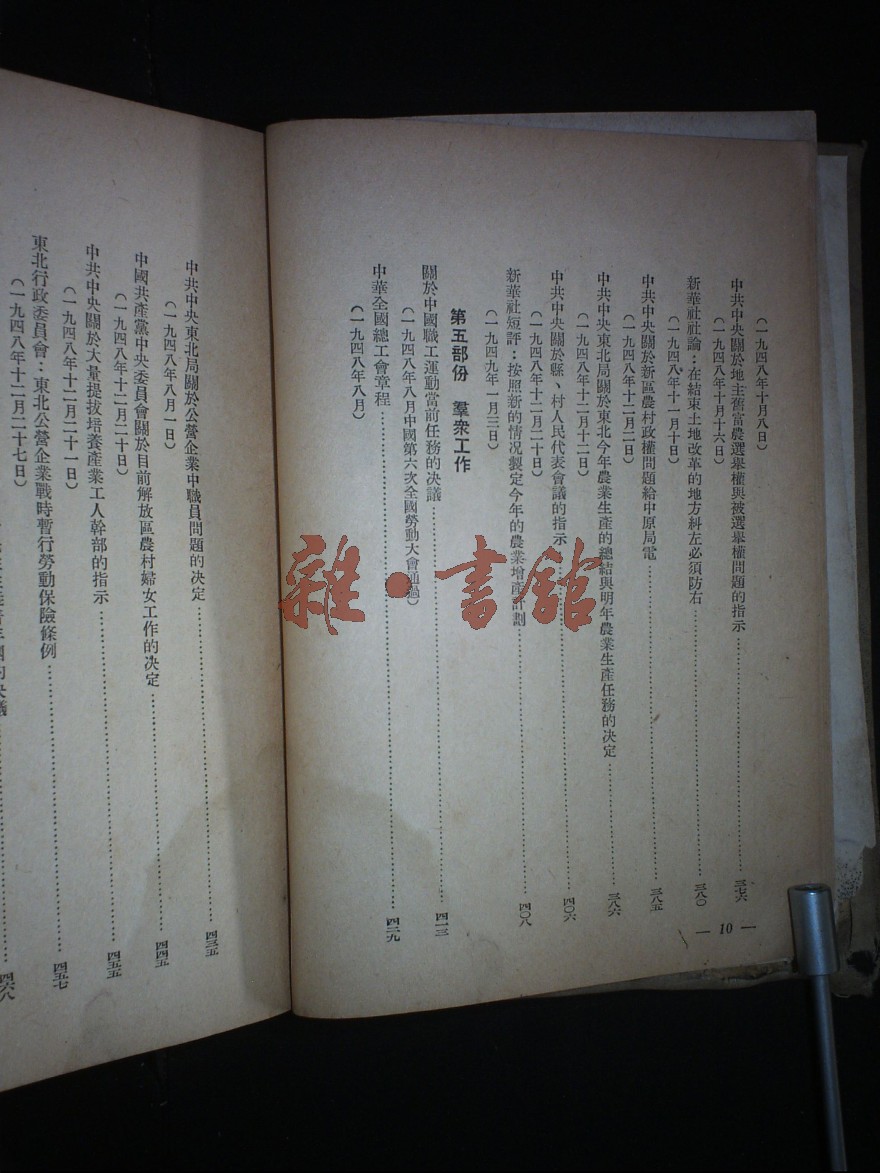 (一九四八年十月八日)
中共中央關於地主舊富農選舉權與被選舉權問題的指示……三七六
(一九四八年十月十六日)
新華社社論：在結束土地改革的地方糾左必須防右……三八〇
(一九四八年十一月十日)
中共中央關於新區農村政權問題給中原局電……三八五
(一九四八年十二月二日)
中共中央東北局關於東北今年農業生產的總結與明年農業生產任務的決定……三八六
(一九四八年十二月十二日)
中共中央關於縣、村人民代表會議的指示……四〇六
(一九四八年十二月二十日)
新華社短評：按照新的情況製定今年的農業增產計劃……四〇八
(一九四九年一月三日)
第五部份　羣衆工作
關於中國職工運動當前任務的決議……四一三
(一九四八年八月中國第六次全國勞動大會通過)
中華全國總工會章程……四二九
(一九四八年八月)
— 10 —
中共中央東北局關於公營企業中職員問題的决定……四三五
(一九四八年八月一日)
中國共產黨中央委員會關於目前解放區農村婦女工作的决定……四四五
(一九四八年十二月二十日)
中共中央關於大量提拔培養產業工人幹部的指示……四五五
(一九四八年十二月二十一日)
東北行政委員會：東北公營企業戰時暫行勞動保險條例……四五七
(一九四八年十二月二十七日)
的决議……四六八
雜·書館